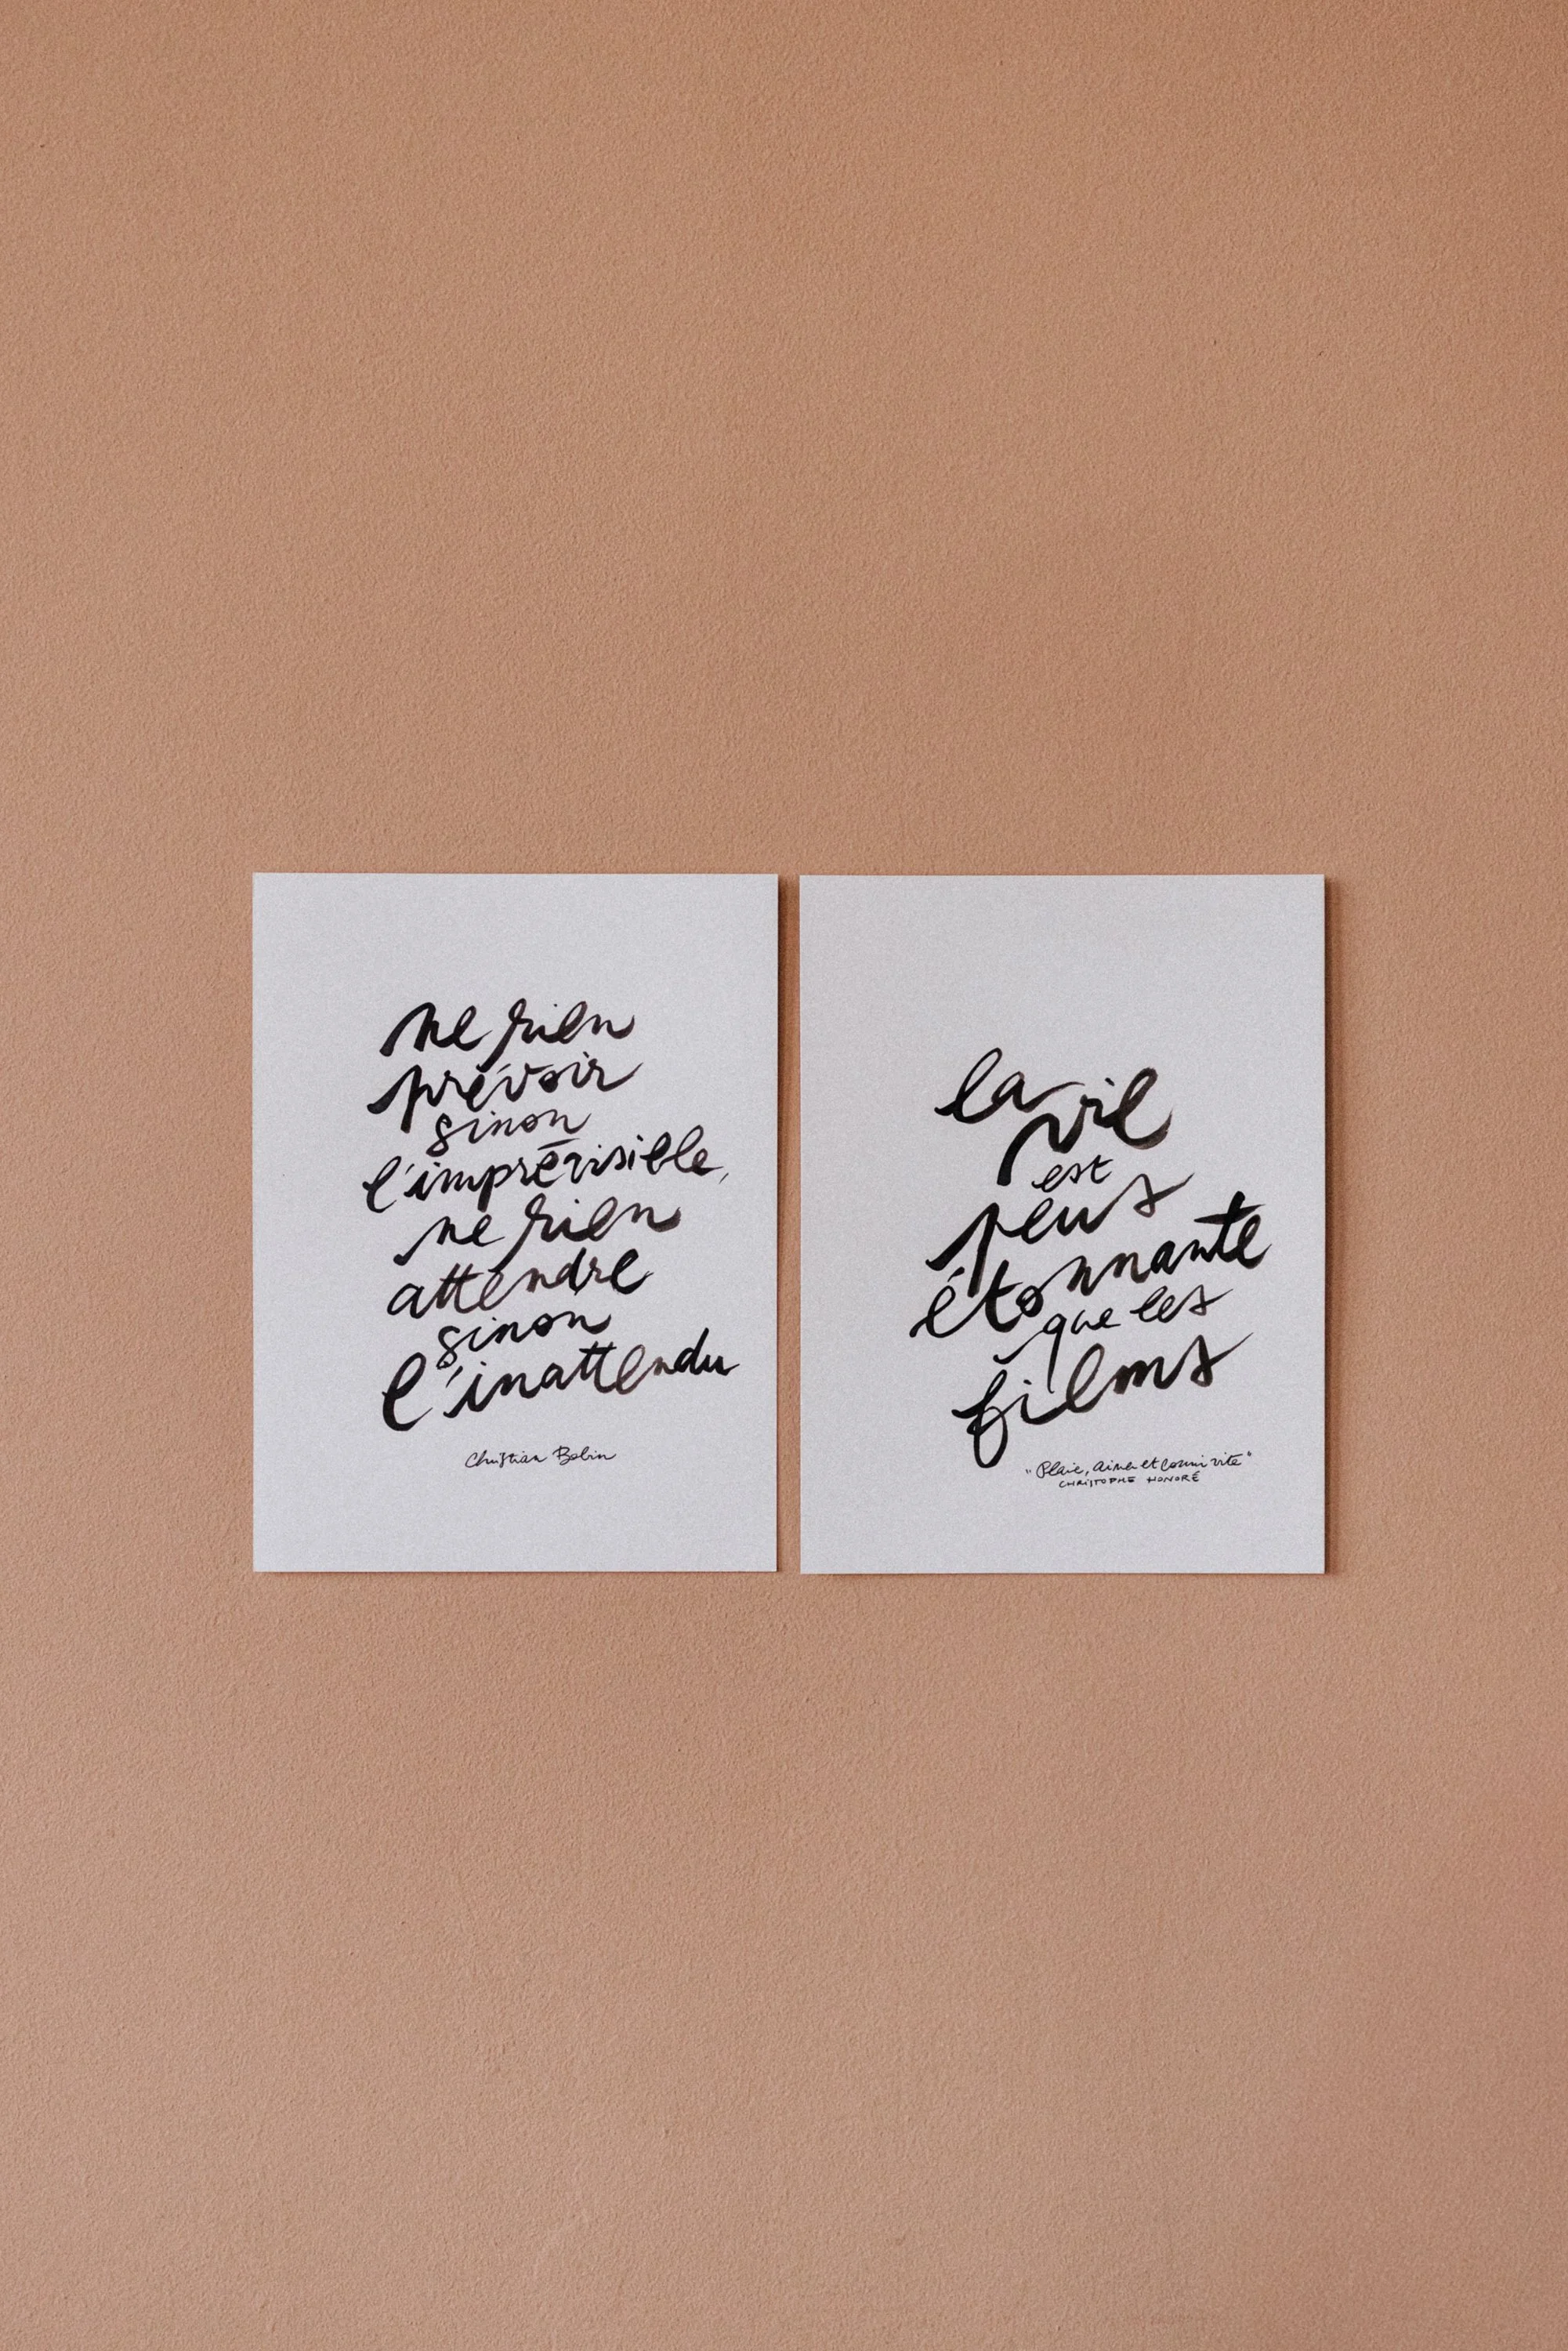 ne rien
prévoir
sinon
l'imprévisible,
ne rien
attendre
sinon
l'inattendu
Christian Bobin
la vie
est
plus
étonnante
que les
films
"Plaire, aimer et courir vite"
CHRISTOPHE HONORÉ